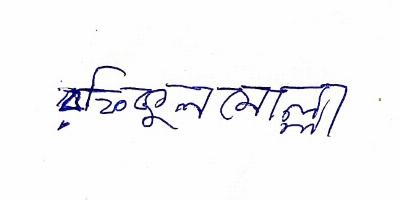 রফিকুল মোল্লা